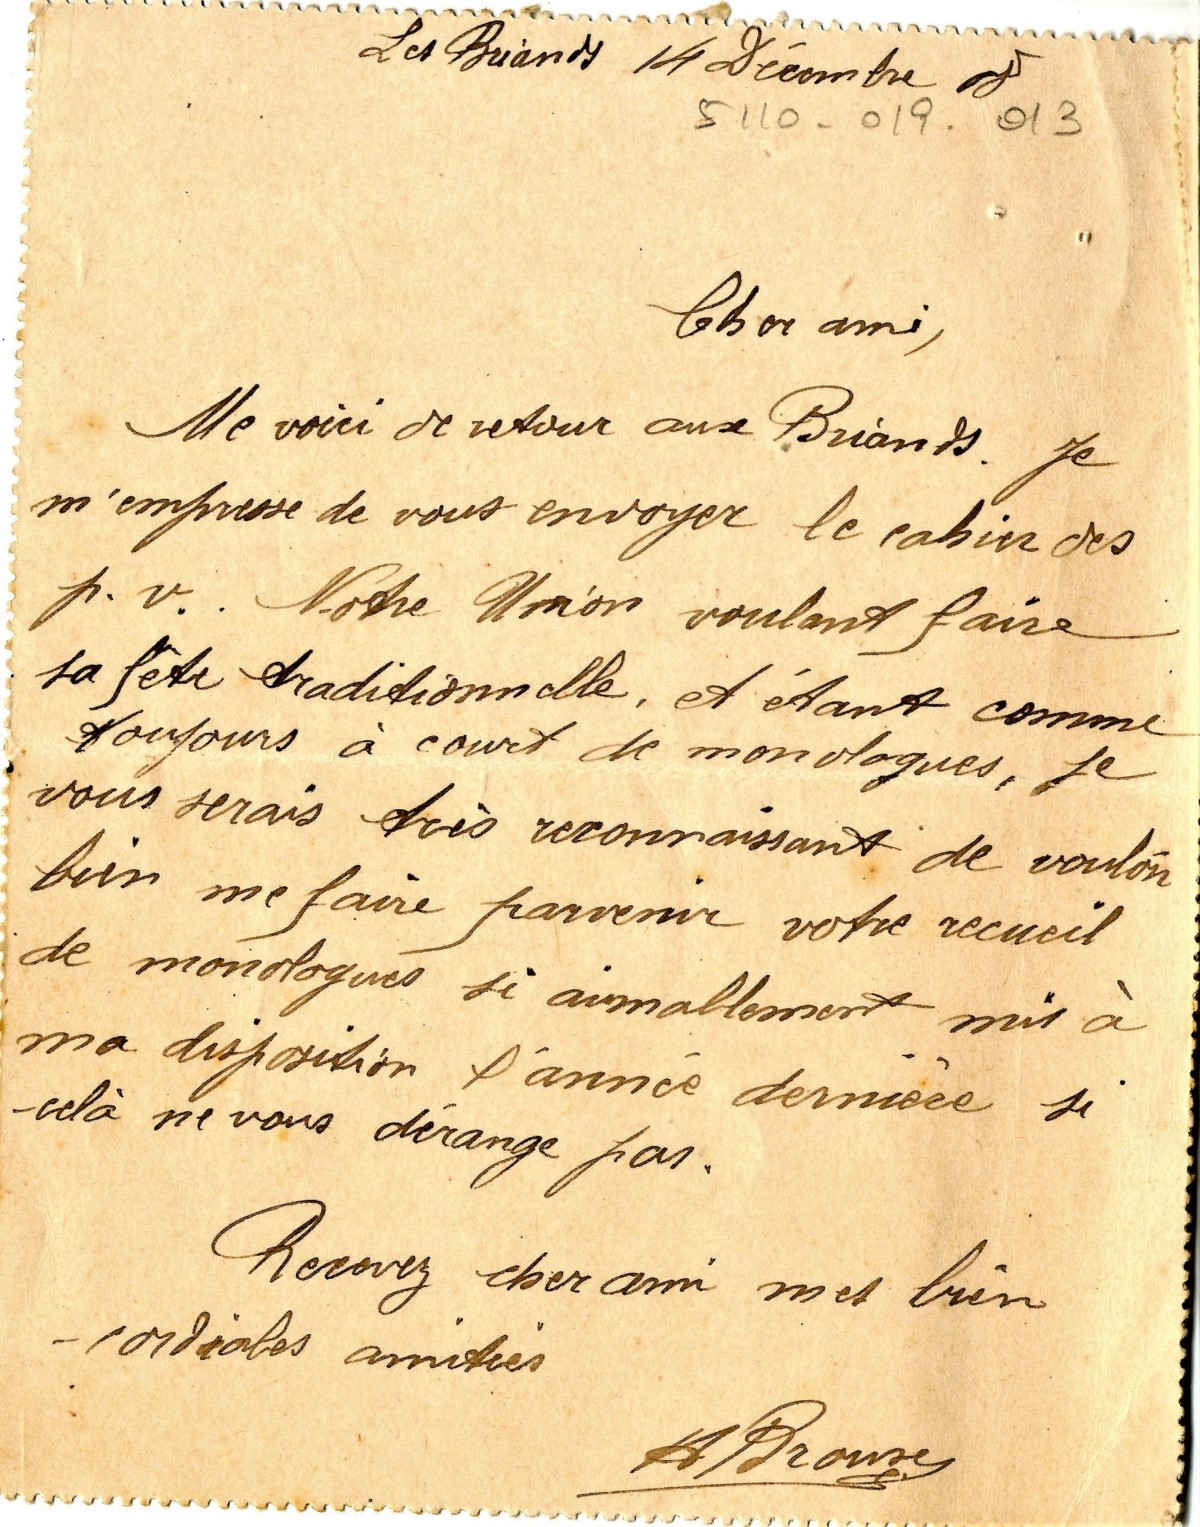 Les Briands 14 Décembre 05
5110-019. 013
Cher ami,
Me voici de retour aux Briands. Je
m'empresse de vous envoyer le cahier des
p. v.. Notre Union voulant faire
sa fête traditionnelle, et étant comme
toujours à court de monologues, je
vous serais très reconnaissant de vouloir
bien me faire parvenir votre recueil
de monologues si aimablement mis à
ma disposition l'année dernière si
celà ne vous dérange pas.
Recevez cher ami mes bien
cordiales amitiés
A Brouse